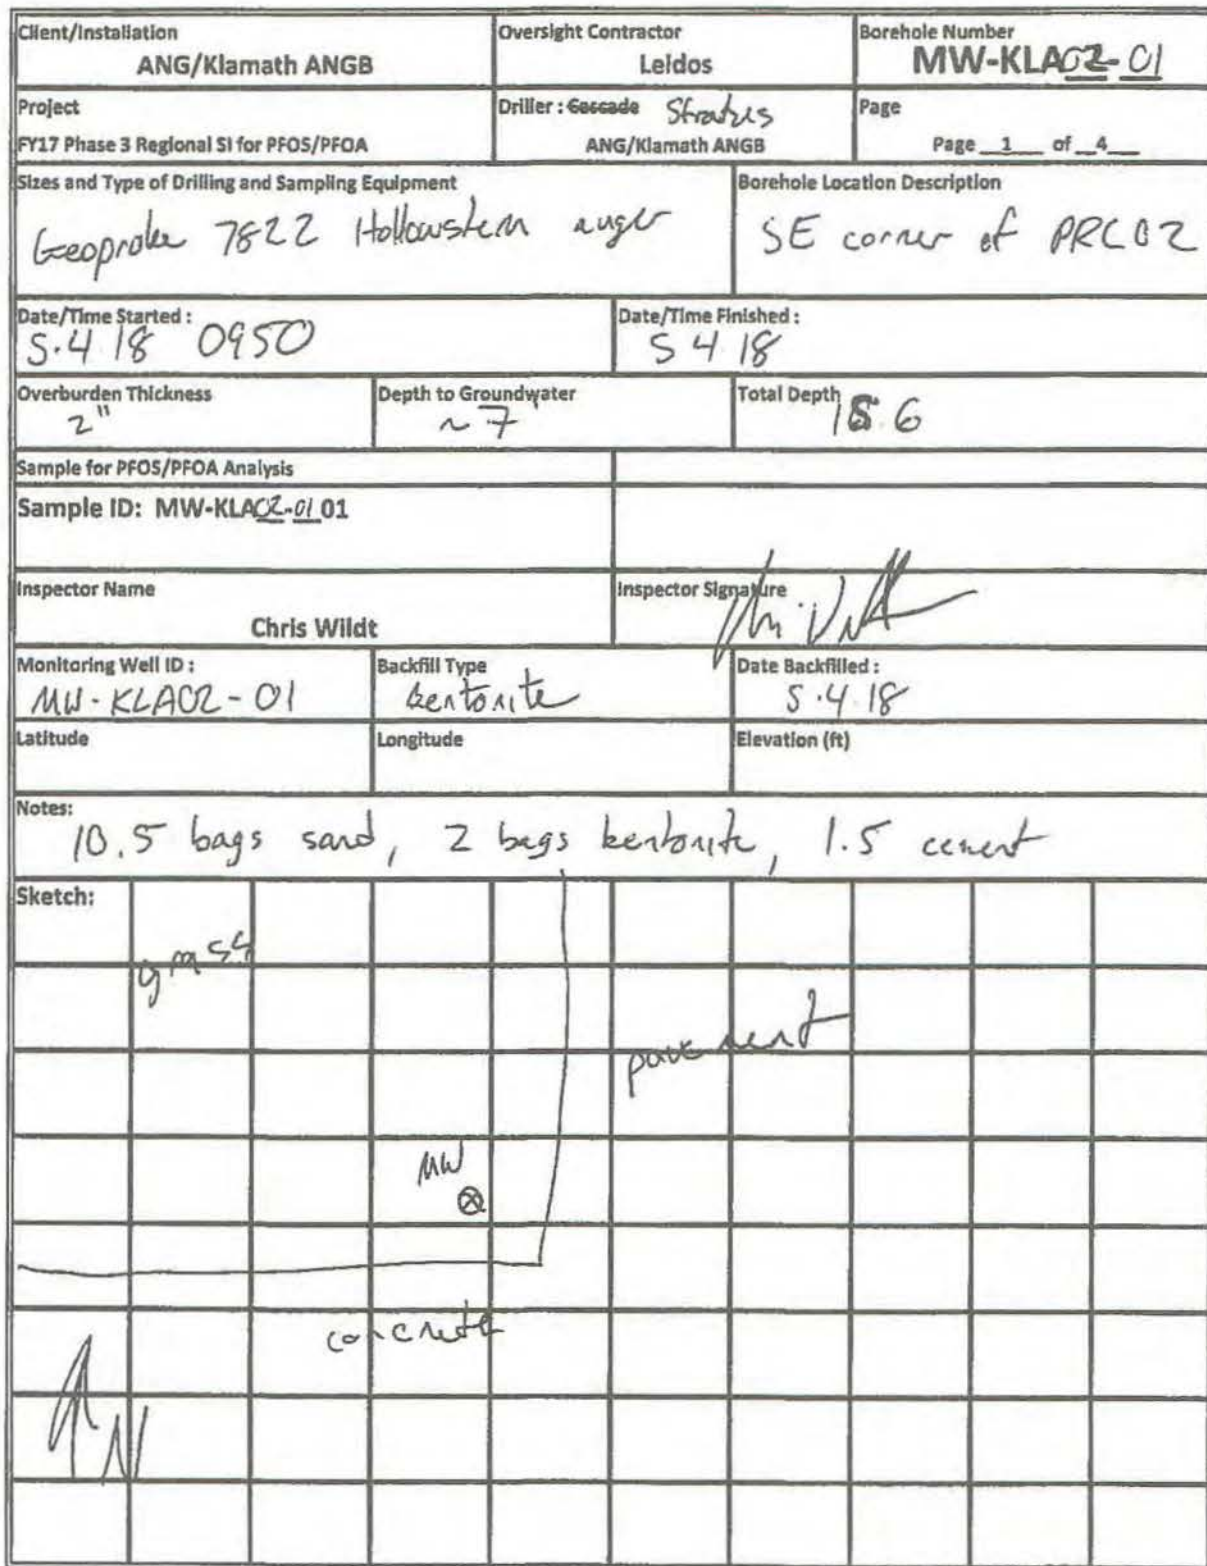 Client/Installation
ANG/Klamath ANGB
Oversight Contractor
Leidos
Borehole Number
MW-KLA02-01
Project
FY17 Phase 3 Regional SI for PFOS/PFOA
Driller : Cascade
ANG/Klamath ANGB
Page
Page 1 of 4
Sizes and Type of Drilling and Sampling Equipment
Geoprobe 7822 Hollowstem auger
Borehole Location Description
SE corner of PRL02
Date/Time Started :
5.4 18 0950
Date/Time Finished :
5 4 18
Overburden Thickness
2"
Depth to Groundwater
~7'
Total Depth
Sample for PFOS/PFOA Analysis
Sample ID: MW-KLA02-01 01
Inspector Name
Chris Wildt
Inspector Signature
Monitoring Well ID :
MW-KLA02-01
Backfill Type
bentonite
Date Backfilled :
5.4.18
Latitude
Longitude
Elevation (ft)
Notes:
10.5 bags sand, 2 bags bentonite, 1.5 cement
Sketch:
grass
pavement
MW
concrete
N